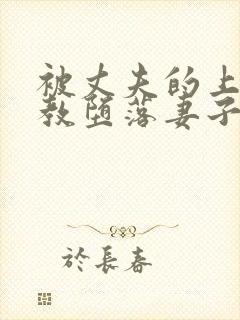 被丈夫的上
教堕落妻子
於長春